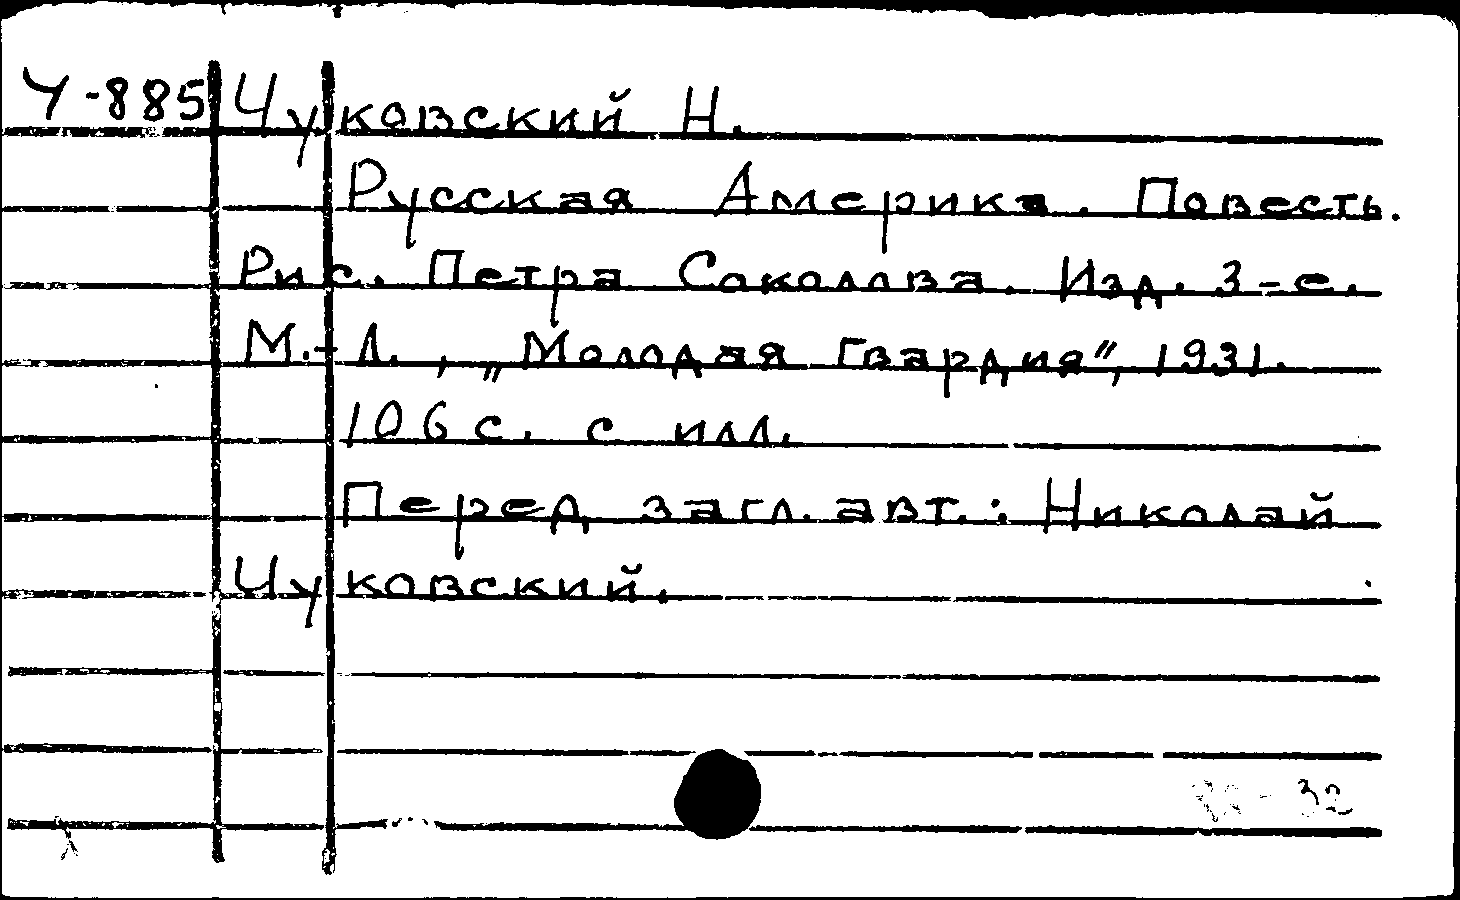 Ч-885 Чуковский Н.
Русская Америка. Повесть.
Рис. Петра Соколова. Изд. 3-е.
М.-Л., „Молодая Гвардия“, 1931.
106 с. с илл.
Перед загл. авт.: Николай
Чуковский.
32